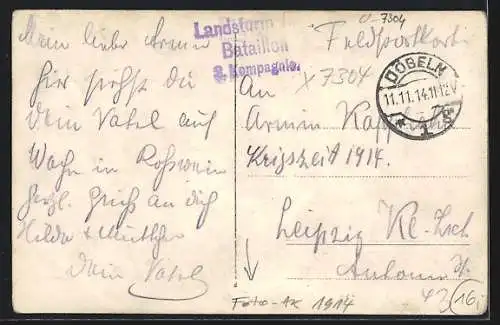 Mein lieber Armin
hier siehst du
Dein Vatel auf
Wache in Roßwein
Herzl. Gruß an dich
Hilde & Muttchen
Dein Vatel
Landsturm
Bataillon
3. Kompagnie.
U-7304
Feldpostkarte
X 7304
DÖBELN
11.11.14.11-12V
An
Armin
Kriegszeit 1914.
Leipzig Kl. Zsch
Foto-AK 1914
43 16,